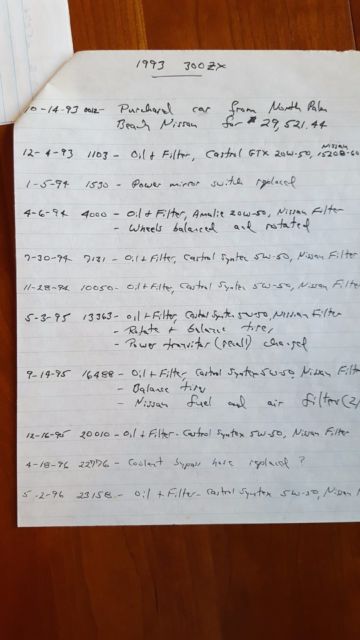 1993 300ZX
10-14-93 0012 - Purchased car from North Palm
Beach Nissan for $29,521.44
12-4-93 1103 - Oil + Filter, Castrol GTX 20W-50, Nissan 15208-60
1-5-94 1530 - Power mirror switch replaced
4-6-94 4000 - Oil + Filter, Amalie 20W-50, Nissan Filter
- Wheels balanced and rotated
7-30-94 7131 - Oil + Filter, Castrol Syntec 5W-50, Nissan Filter
11-28-94 10050 - Oil + Filter, Castrol Syntec 5W-50, Nissan Filt
5-3-95 13363 - Oil + Filter, Castrol Syntec 5W-50, Nissan Filter
- Rotate + balance tires
- Power transitor (recall) changed
9-14-95 16488 - Oil + Filter, Castrol Syntec 5W-50 Nissan Filt
- Balance tires
- Nissan fuel and air filters (2)
12-16-95 20010 - Oil + Filter - Castrol Syntec 5W-50, Nissan Filter
4-18-96 22776 - Coolant bypass hose replaced ?
5-2-96 23158 - Oil + Filter - Castrol Syntec 5W-50, Nissan